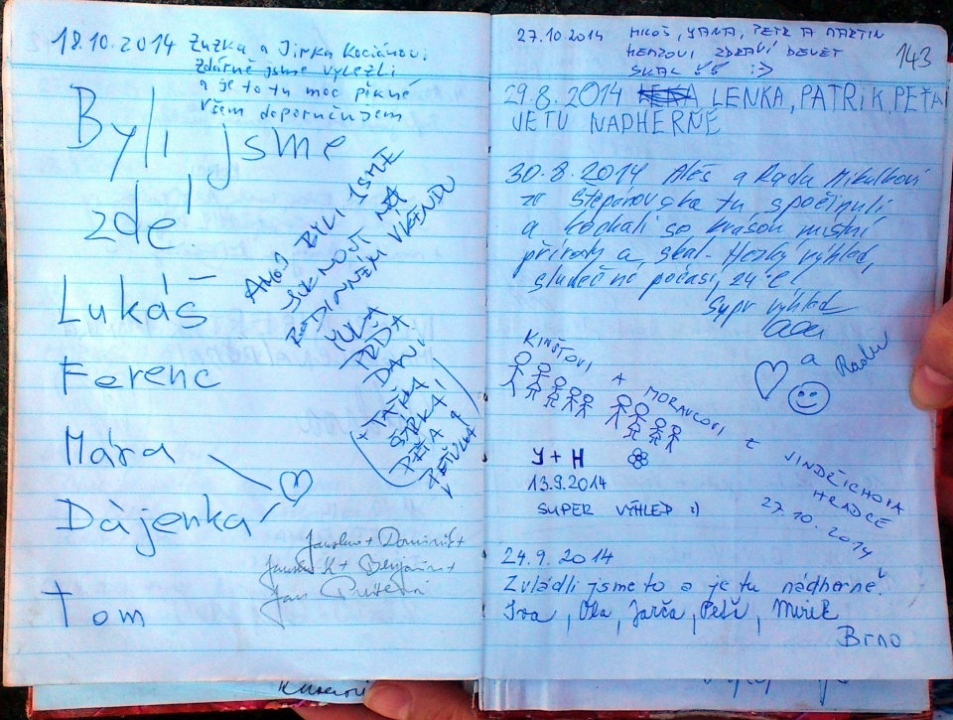 18.10.2014 Zuzka a Jirka Kociánovi
Zdárně jsme vylezli
a je to tu moc pěkné
Všem doporučujem
Byli jsme
zde
Lukáš
Ferenc
Mára
Dájenka
Tom
AHOJ BYLI JSME
NA
RODINNÉM VÍKENDU
PRĎA
DANI
+ TAŠKA
PÉŤA
Jaroslav + Dominik +
+ Benjamín +
Jan
27.10.2014 MILOŠ, JANA, PETR A MARTIN
ZDRAVÍ DEVĚT
SKAL :)
143
29.8.2014 LENKA, PATRIK, PEŤA
JE TU NADHERNĚ
30.8.2014 Aleš a Rada Mikulkovi
ze Štěpánovska tu spočinuli
a kochali se krásou místní
přírody a skal. Hezký výhled,
slunečné počasí, 24°C
Supr výhled
a Radu
KINŠTOVI A MORAVCOVI z
JINDŘICHOVA
HRADCE
27.10.2014
Y + H
13.9.2014
SUPER VÝHLED :)
24.9.2014
Zvládli jsme to a je tu nádherně.
Iva, Ola, Jarča, Peši, Mirek
Brno